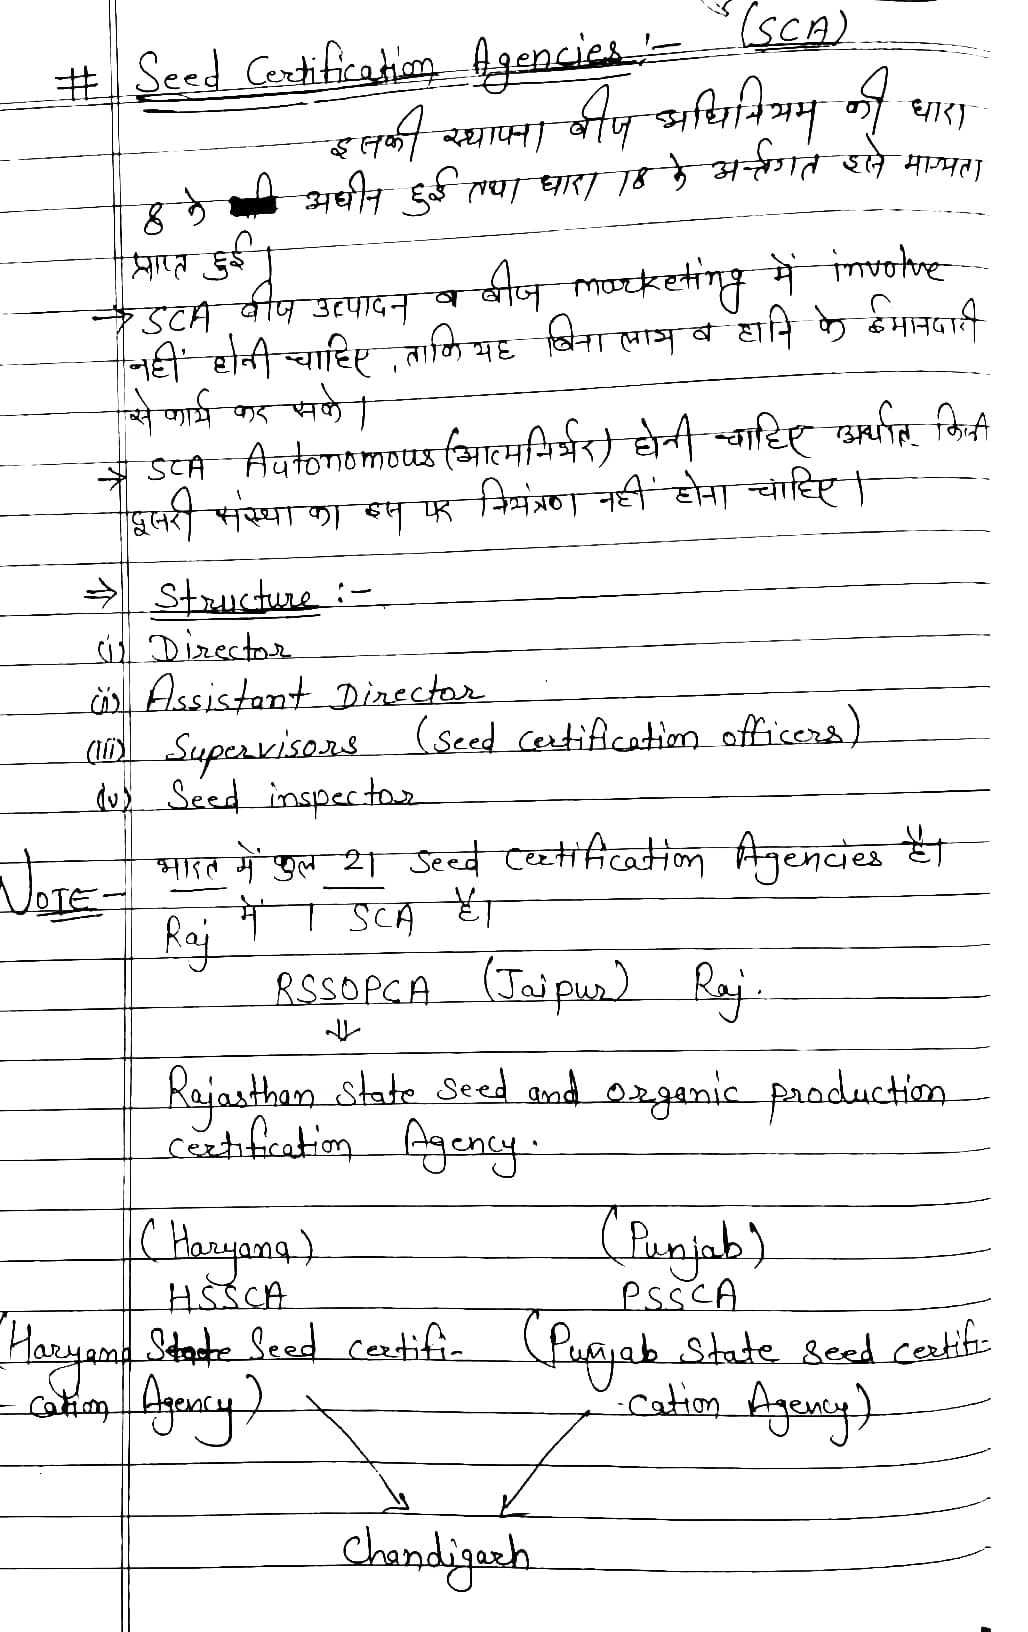 (SCA)
# Seed Certification Agencies :-
इसकी स्थापना बीज अधिनियम की धारा
8 के अधीन हुई तथा धारा 18 के अर्न्तगत इसे मान्यता
प्राप्त हुई।
→ SCA बीज उत्पादन व बीज marketing में involve
नहीं होनी चाहिए, ताकि यह बिना लाभ व हानि के ईमानदारी
से कार्य कर सके।
→ SCA Autonomous (आत्मनिर्भर) होनी चाहिए अर्थात किसी
दूसरी संस्था का इस पर नियंत्रण नहीं होना चाहिए।
⇒ Structure :-
(i) Director
(ii) Assistant Director
(iii) Supervisors (Seed certification officers)
(iv) Seed inspector
NOTE - भारत में कुल 21 Seed Certification Agencies है।
Raj में 1 SCA है।
RSSOPCA (Jaipur) Raj.
⇓
Rajasthan State Seed and organic production
certification Agency.
(Haryana) (Punjab)
HSSCA PSSCA
(Haryana State Seed certifi- (Punjab State seed certifi-
-cation Agency) -cation Agency)
Chandigarh